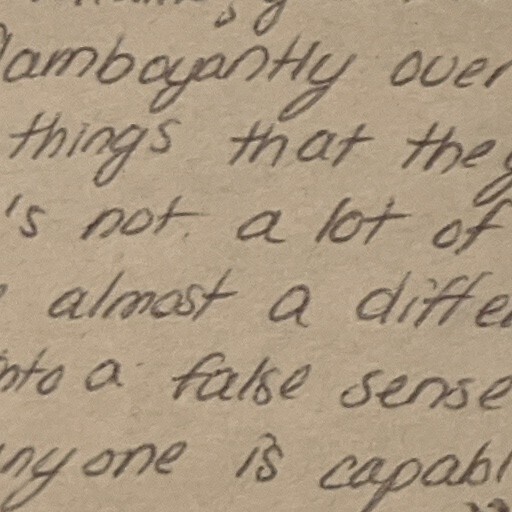 lamboyantly over
things that they
's not a lot of
almost a diffe
nto a false sense
nyone is capabl